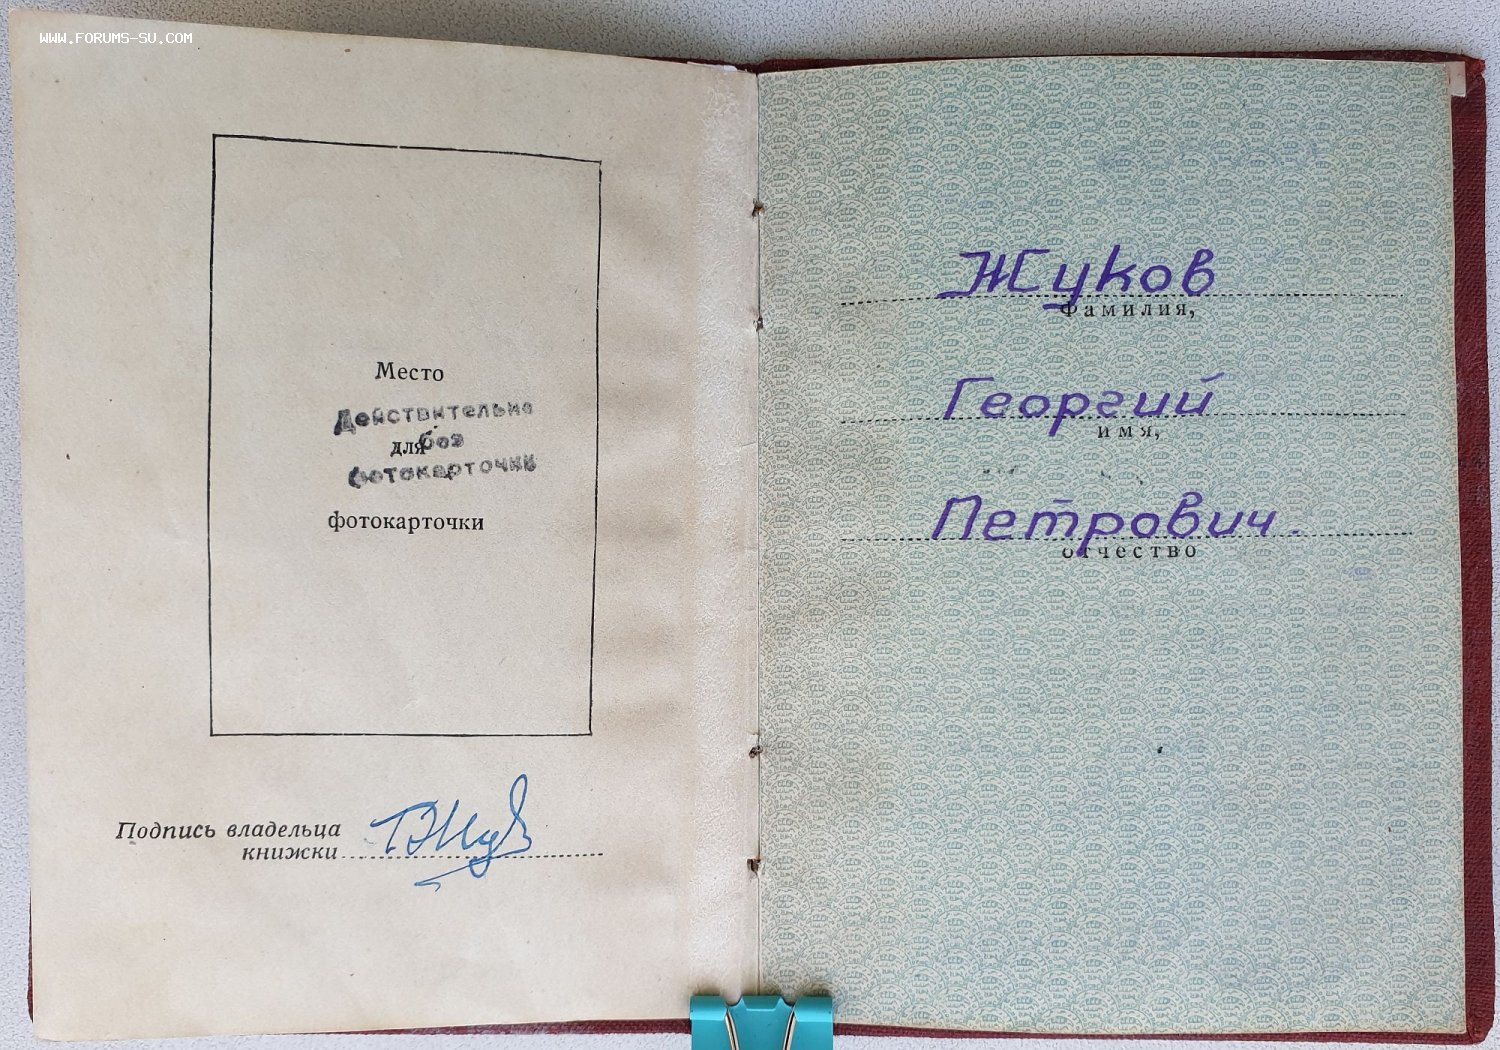 WWW.FORUMS-SU.COM
Место
Действительно
для без
фотокарточки
фотокарточки
Подпись владельца
книжки
Жуков
Фамилия,
Георгий
имя,
Петрович.
отчество